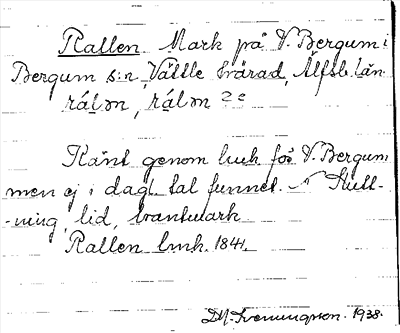 Rallen. Mark på V. Bergum i
Bergum s:n, Vättle härad, Älfsb. län.
rálən, rálən ??
Känt genom luk för V. Bergum
men ej i dagl. tal funnet. Kull-
-ning, lid, brantmark
Rallen lmk. 1841.
1938.